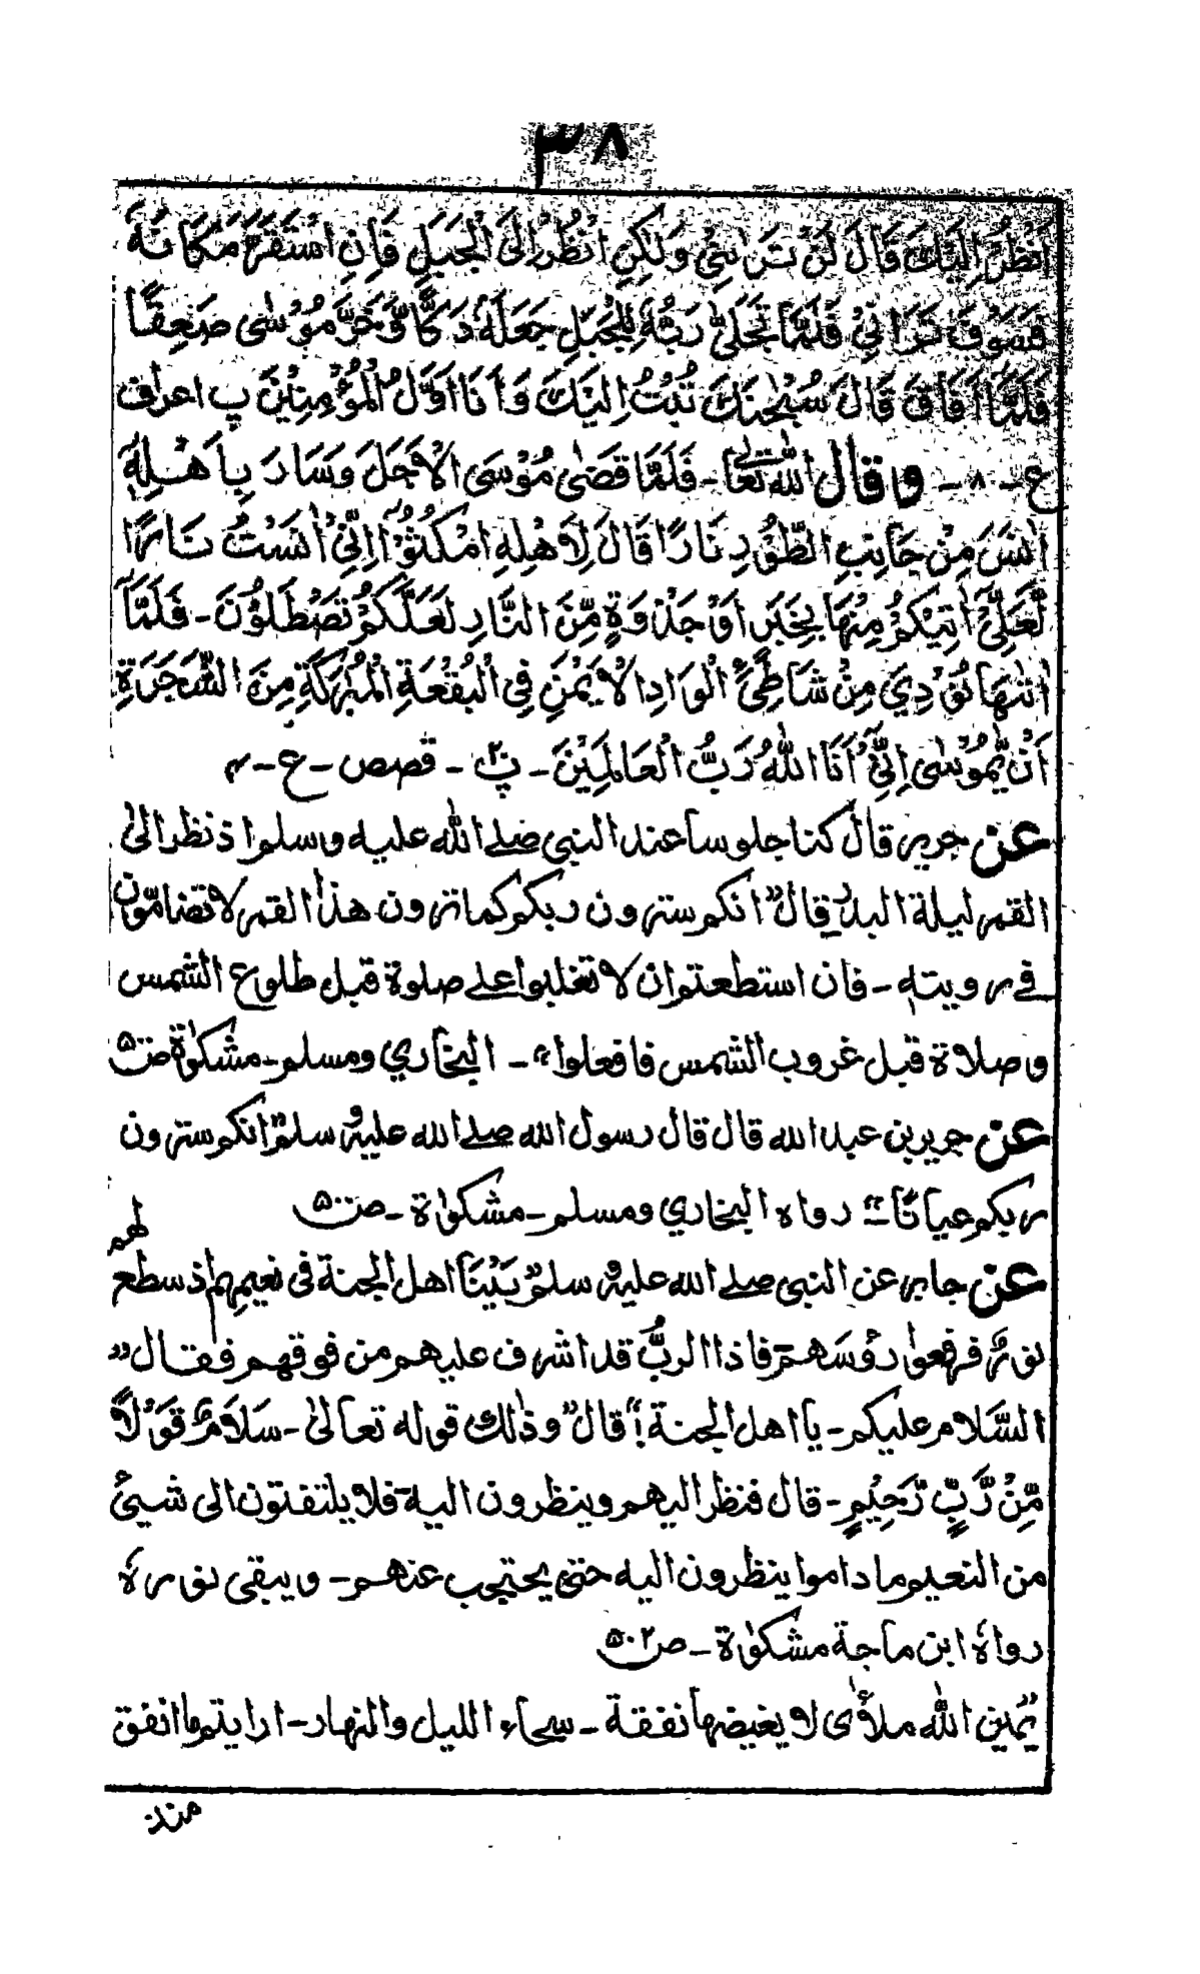 ٣٨
اَنْظُرْ اِلَيْكَ قَالَ لَنْ تَرَانِيْ وَلٰكِنِ انْظُرْ اِلَى الْجَبَلِ فَاِنِ اسْتَقَرَّ مَكَانَهٗ
فَسَوْفَ تَرَانِيْ فَلَمَّا تَجَلّٰى رَبُّهٗ لِلْجَبَلِ جَعَلَهٗ دَكًّا وَّخَرَّ مُوْسٰى صَعِقًا
فَلَمَّا اَفَاقَ قَالَ سُبْحٰنَكَ تُبْتُ اِلَيْكَ وَاَنَا اَوَّلُ الْمُؤْمِنِيْنَ پ اعراف
ع - ٨ - وقال الله تعالى - فَلَمَّا قَضٰى مُوْسَى الْاَجَلَ وَسَارَ بِاَهْلِهٖ
اٰنَسَ مِنْ جَانِبِ الطُّوْرِ نَارًا قَالَ لِاَهْلِهِ امْكُثُوْۤا اِنِّيْۤ اٰنَسْتُ نَارًا
لَّعَلِّيْۤ اٰتِيْكُمْ مِنْهَا بِخَبَرٍ اَوْ جَذْوَةٍ مِّنَ النَّارِ لَعَلَّكُمْ تَصْطَلُوْنَ - فَلَمَّاۤ
اَتٰىهَا نُوْدِيَ مِنْ شَاطِئِ الْوَادِ الْاَيْمَنِ فِي الْبُقْعَةِ الْمُبٰرَكَةِ مِنَ الشَّجَرَةِ
اَنْ يّٰمُوْسٰى اِنِّيْۤ اَنَا اللّٰهُ رَبُّ الْعَالَمِيْنَ - پ٢٠ - قصص - ع - ٤
عن جرير قال كنا جلوسا عند النبي صلے الله عليه وسلم اذ نظر الى
القمر ليلة البدر فقال "انكم سترون ربكم كما ترون هذا القمر لا تضامّون
في رويته - فان استطعتم ان لا تغلبوا علے صلوة قبل طلوع الشمس
وصلاة قبل غروب الشمس فافعلوا" - البخاري ومسلم - مشكوٰة ص٥٠٠
عن جرير بن عبد الله قال قال رسول الله صلے الله عليه وسلم "انكم سترون
ربكم عيانًا" رواه البخاري ومسلم - مشكوٰة - ص٥٠٠
عن جابر عن النبي صلے الله عليه وسلم "بَيْنَا اهل الجنة في نعيمهم اذ سطع لهم
نورٌ فرفعوا رؤسَهم فاذا الربُّ قد اشرف عليهم من فوقهم فقال "
السَّلام عليكم - يا اهل الجنة!" قال" وذلك قوله تعالىٰ - سَلَامٌ قَوْلًا
مِّنْ رَّبٍّ رَّحِيْمٍ - قال فنظر اليهم وينظرون اليه فلا يلتفتون الى شيئ
من النعيم ما داموا ينظرون اليه حتى يحتجب عنهم - ويبقى نوره
رواه ابن ماجة مشكوٰة - ص٥٠٢
يَمين الله ملأى لا يغيضها نفقة - سحاء الليل والنهار - ارايتم ما انفق
منذ